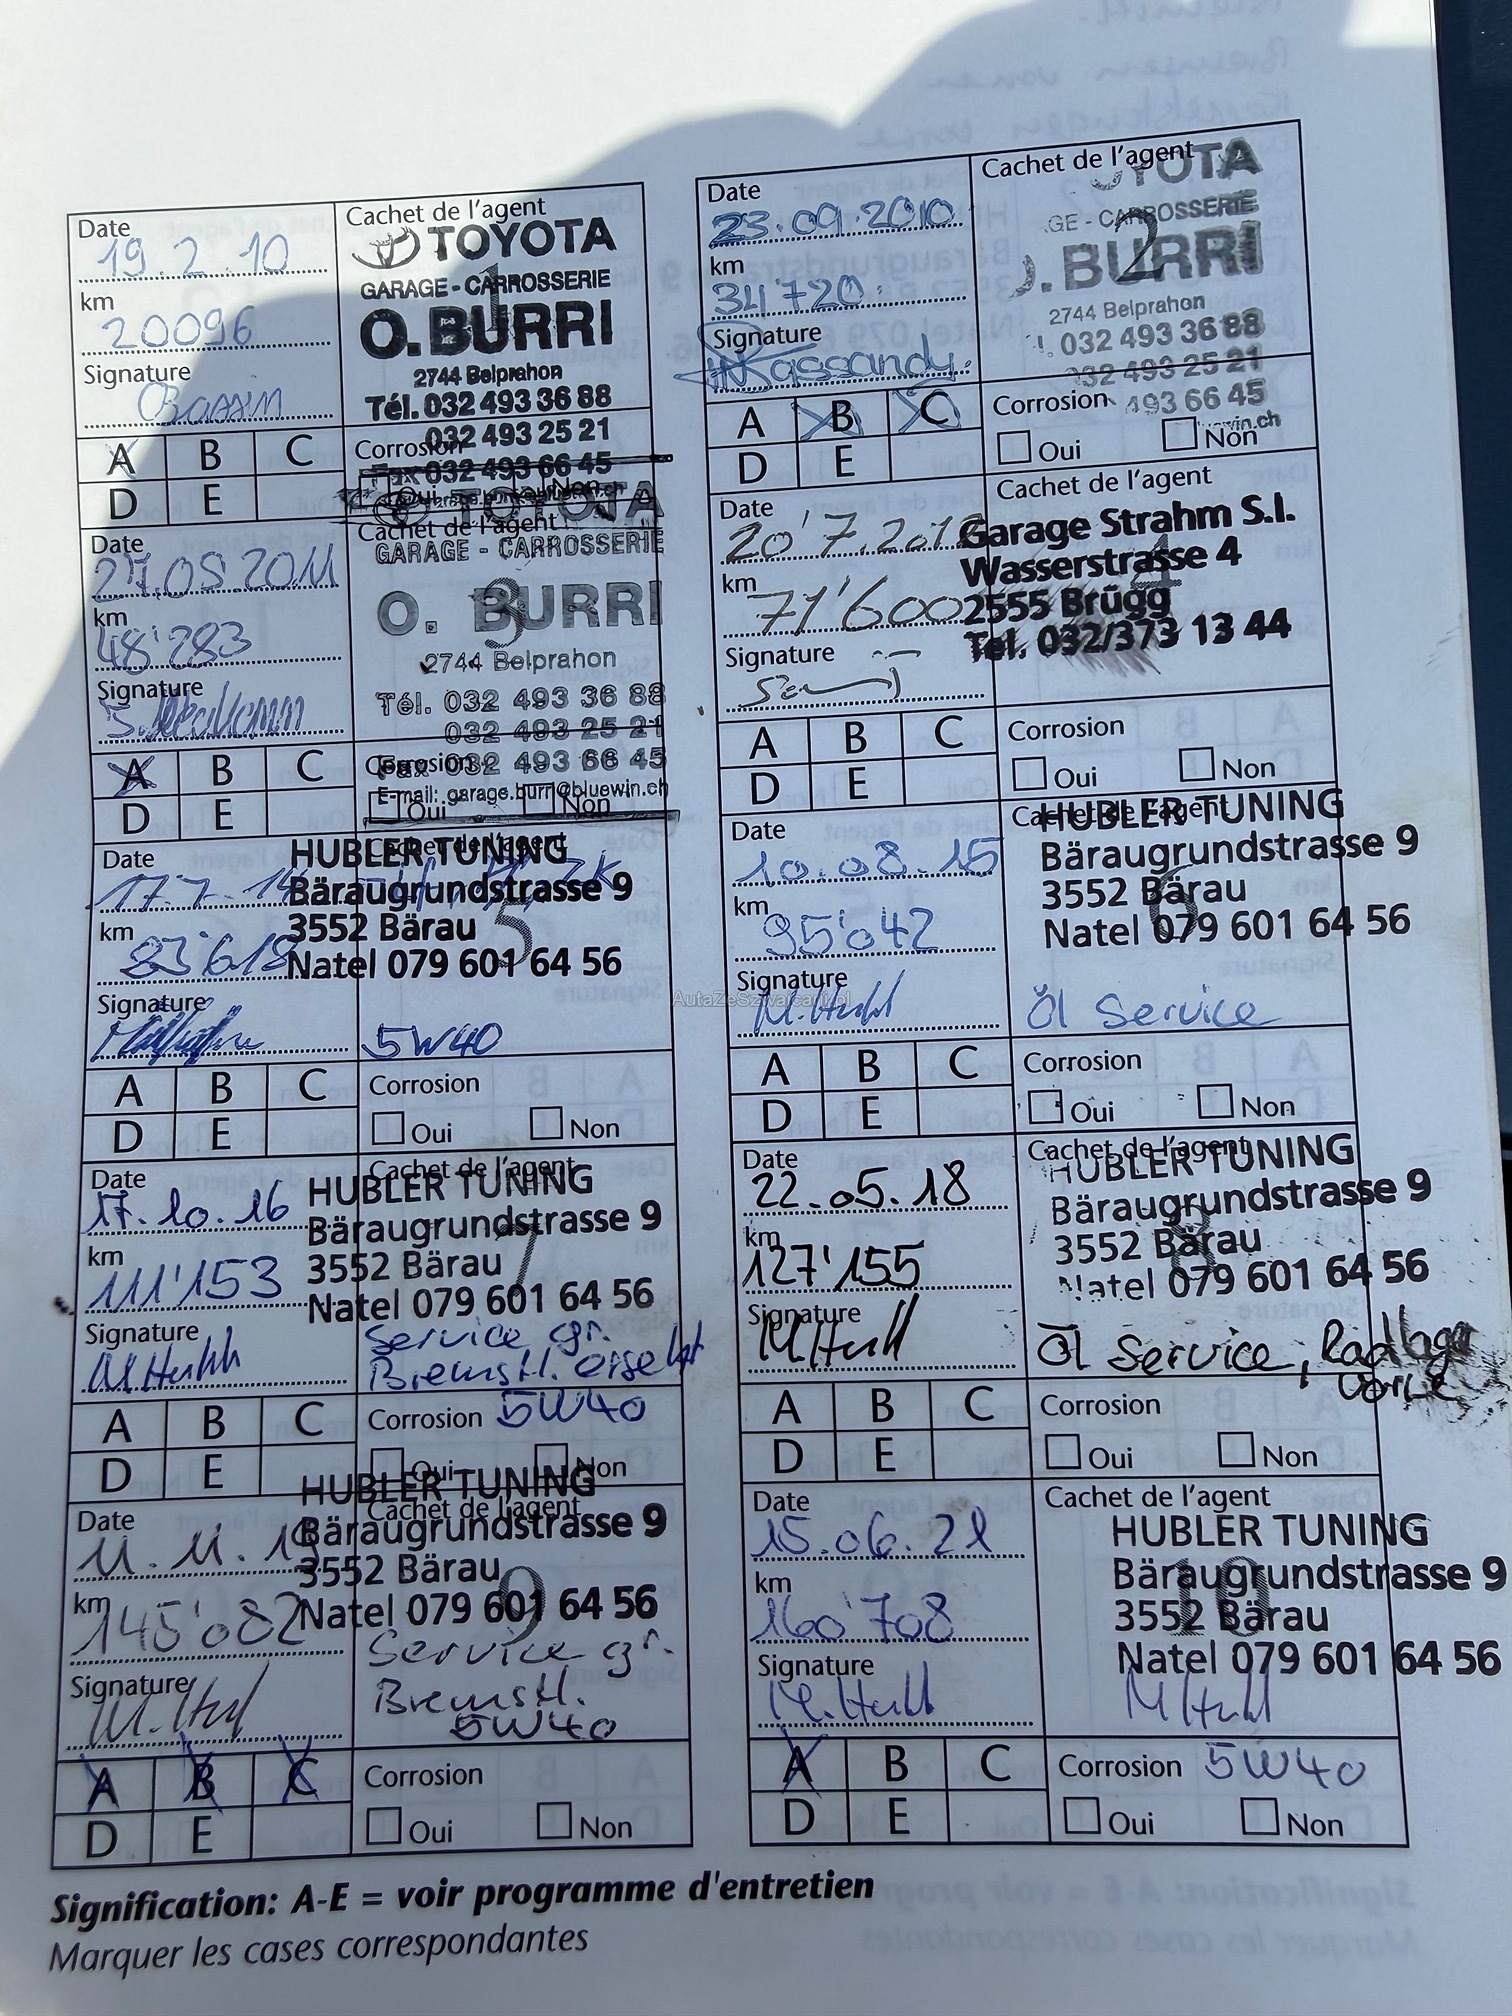 Date
19.2.10
km
20096
Signature
Cachet de l'agent
TOYOTA
1
GARAGE - CARROSSERIE
O. BURRI
2744 Belprahon
Tél. 032 493 36 88
032 493 25 21
Fax 032 493 66 45
A B C
D E
Corrosion
Oui Non
Date
23.09.2010
km
34720
Signature
Cachet de l'agent
TOYOTA
2
GE - CARROSSERIE
O. BURRI
2744 Belprahon
032 493 36 88
032 493 25 21
493 66 45
win.ch
A B C
D E
Corrosion
Oui Non
Date
27.05.2011
km
48'283
Signature
Cachet de l'agent
TOYOTA
GARAGE - CARROSSERIE
3
O. BURRI
2744 Belprahon
Tél. 032 493 36 88
032 493 25 21
Fax 032 493 66 45
E-mail: garage.burri@bluewin.ch
A B C
D E
Corrosion
Oui Non
Date
20'7.201
km
71'600
Signature
Cachet de l'agent
4
Garage Strahm S.I.
Wasserstrasse 4
2555 Brügg
Tel. 032/373 13 44
A B C
D E
Corrosion
Oui Non
Date
17.7.14
km
83'618
Signature
Cachet de l'agent
HUBLER TUNING
Bäraugrundstrasse 9
3552 Bärau
5
Natel 079 601 64 56
5W40
A B C
D E
Corrosion
Oui Non
Date
10.08.15
km
95'042
Signature
M. Hubl
Cachet de l'agent
HUBLER TUNING
Bäraugrundstrasse 9
3552 Bärau
6
Natel 079 601 64 56
Öl Service
A B C
D E
Corrosion
Oui Non
AutaZeSzwajcarii.pl
Date
17.10.16
km
111'153
Signature
Cachet de l'agent
HUBLER TUNING
Bäraugrundstrasse 9
3552 Bärau
7
Natel 079 601 64 56
Service gr.
Bremsfl. ersetzt
5W40
A B C
D E
Corrosion
Oui Non
Date
22.05.18
km
127'155
Signature
Cachet de l'agent
HUBLER TUNING
Bäraugrundstrasse 9
3552 Bärau
8
Natel 079 601 64 56
Öl Service, Radlager
vorne
A B C
D E
Corrosion
Oui Non
Date
11.11.19
km
145'082
Signature
Cachet de l'agent
HUBLER TUNING
Bäraugrundstrasse 9
3552 Bärau
9
Natel 079 601 64 56
Service gr.
Bremsfl.
5W40
A B C
D E
Corrosion
Oui Non
Date
15.06.21
km
160'708
Signature
Cachet de l'agent
HUBLER TUNING
Bäraugrundstrasse 9
3552 Bärau
10
Natel 079 601 64 56
5W40
A B C
D E
Corrosion
Oui Non
Signification: A-E = voir programme d'entretien
Marquer les cases correspondantes